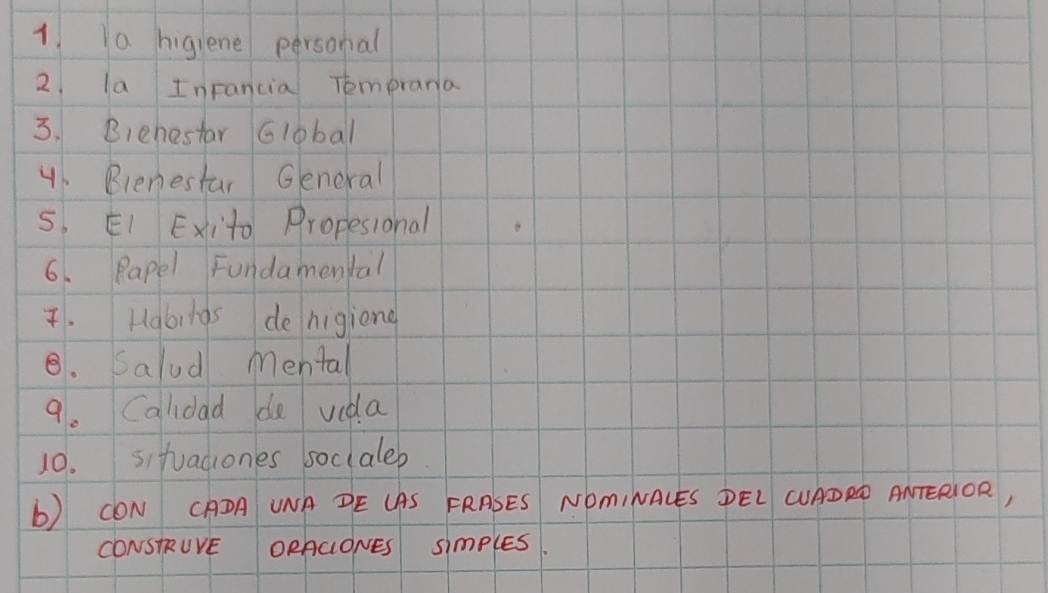 1. la higiene personal
2. la Infancia Temprana
3. Bienestar Global
4. Bienestar General
5. El Exito Profesional
6. Papel Fundamental
7. Habitos de higiene
8. Salud Mental
9. Calidad de vida
10. situaciones sociales
b) CON CADA UNA DE LAS FRASES NOMINALES DEL CUADRO ANTERIOR,
CONSTRUYE ORACIONES SIMPLES.